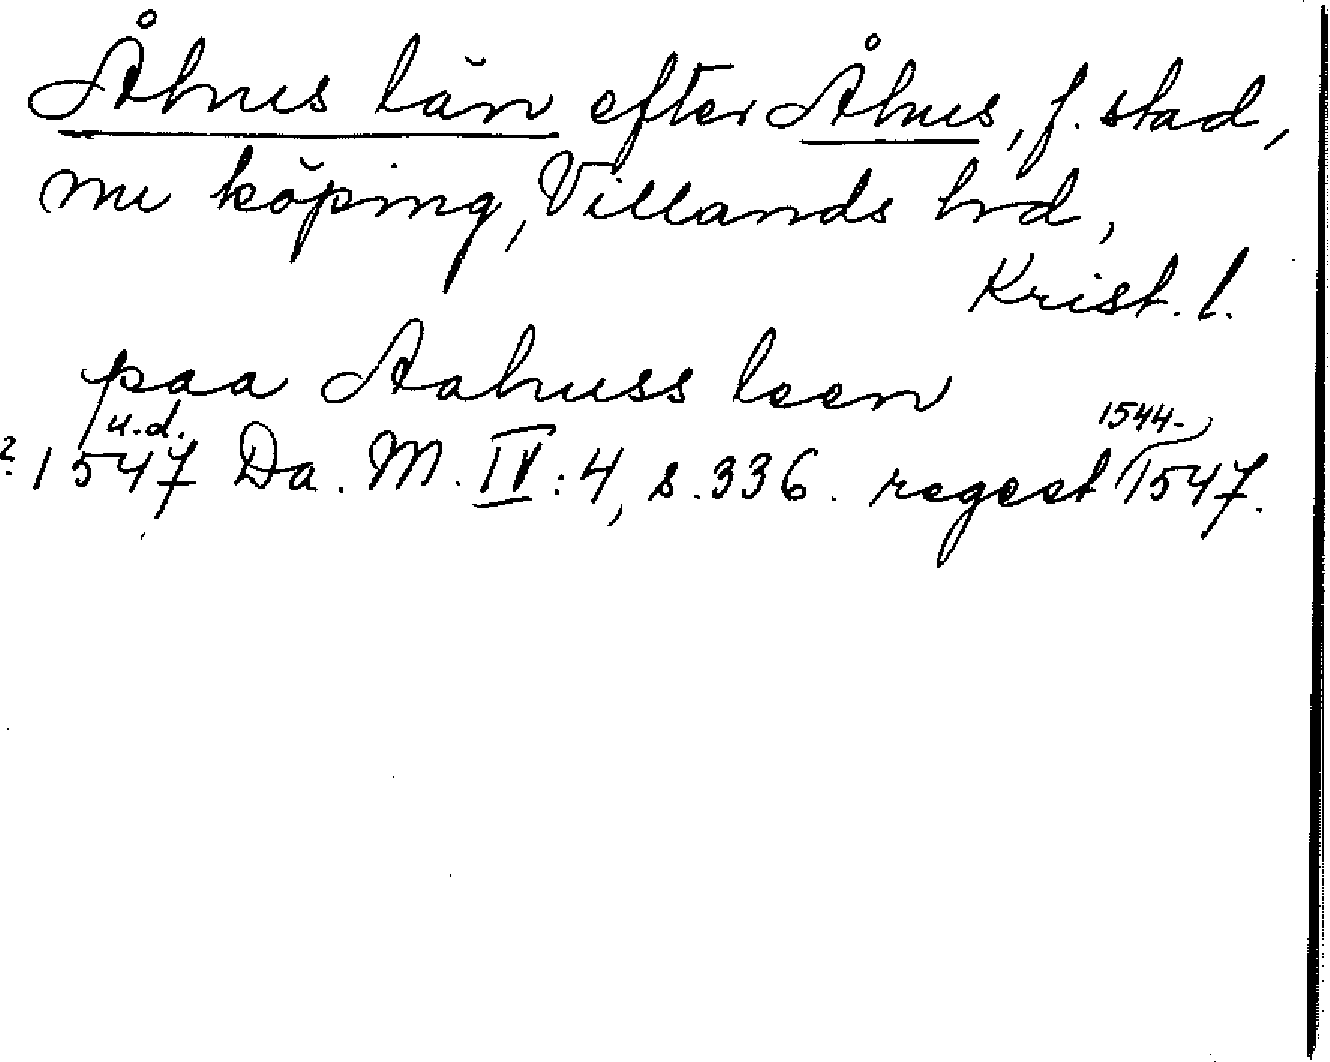 Åhus län efter Åhus, f. stad,
nu köping, Villands hd,
Krist. l.
paa Aahuss leen
u.d. 1544-
? 1547 Da. M. IV:4, s. 336. regest 1547.